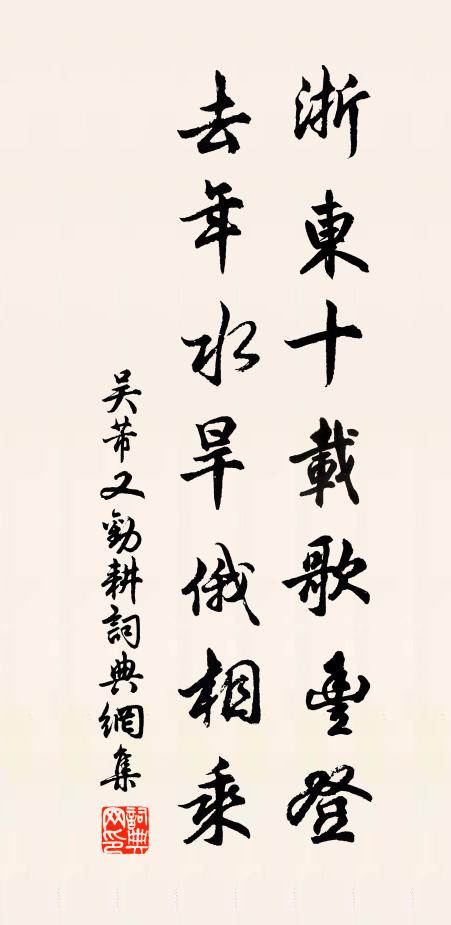 浙東十載歌豊登
去年水旱俄相乘
吴芾又勸耕詞典網集
詞典網印